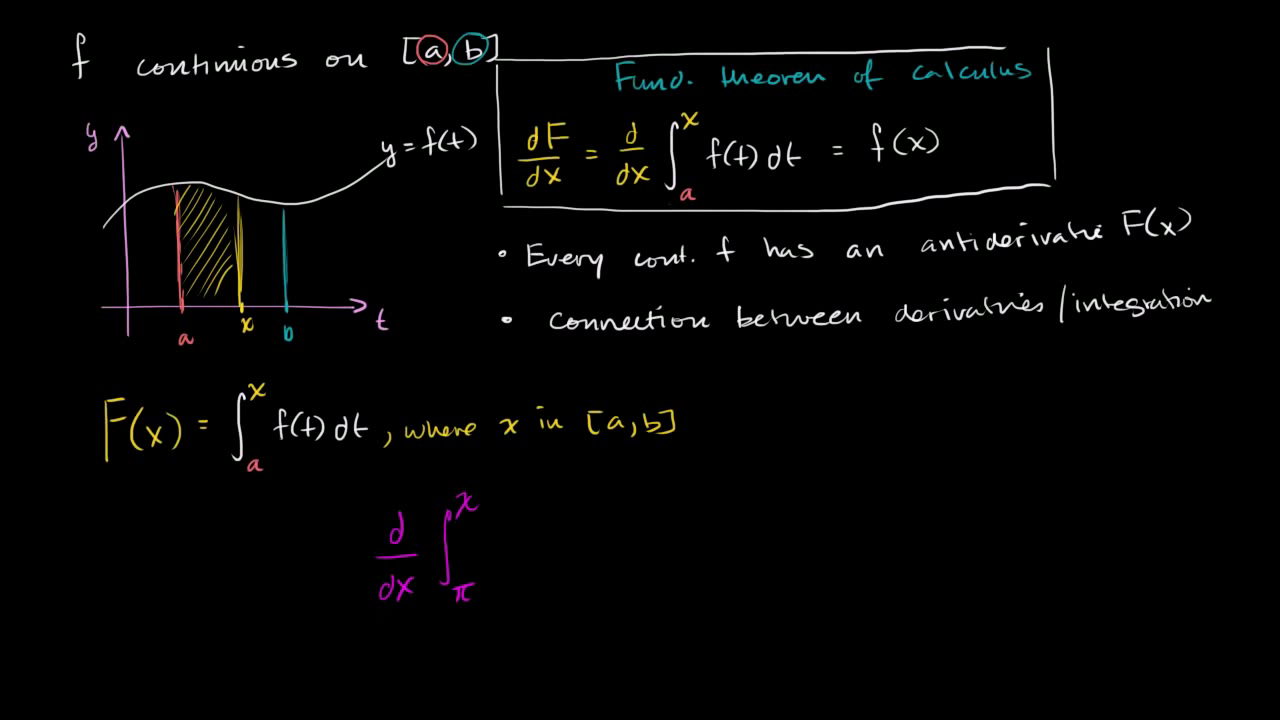 f continuous on [a, b]
Fund. theorem of calculus
dF/dx = d/dx ∫_a^x f(t) dt = f(x)
y
y = f(t)
a x b t
• Every cont. f has an antiderivative F(x)
• connection between derivatives/integration
F(x) = ∫_a^x f(t) dt, where x in [a,b]
d/dx ∫_π^x